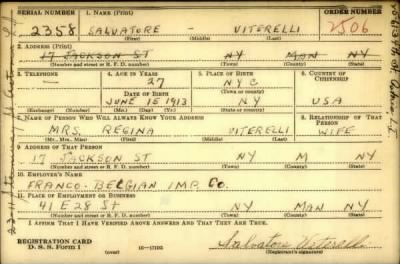 SERIAL NUMBER 1. NAME (Print) ORDER NUMBER
2358 SALVATORE - VITERELLI 2506
(First) (Middle) (Last)
2. ADDRESS (Print)
17 JACKSON ST NY MAN NY
(Number and street or R. F. D. number) (Town or county) (County) (State)
3. TELEPHONE 4. AGE IN YEARS 5. PLACE OF BIRTH 6. COUNTRY OF CITIZENSHIP
— 27 NYC
DATE OF BIRTH (Town or county)
JUNE 15 1913 NY USA
(Exchange) (Number) (Mo.) (Day) (Yr.) (State or country)
7. NAME OF PERSON WHO WILL ALWAYS KNOW YOUR ADDRESS 8. RELATIONSHIP OF THAT PERSON
MRS. REGINA VITERELLI WIFE
(Mr., Mrs., Miss) (First) (Middle) (Last)
9. ADDRESS OF THAT PERSON
17 JACKSON ST NY M NY
(Number and street or R. F. D. number) (Town) (County) (State)
10. EMPLOYER'S NAME
FRANCO-BELGIAN IMP. Co.
11. PLACE OF EMPLOYMENT OR BUSINESS
41 E 28 St NY MAN NY
(Number and street or R. F. D. number) (Town) (County) (State)
I AFFIRM THAT I HAVE VERIFIED ABOVE ANSWERS AND THAT THEY ARE TRUE.
REGISTRATION CARD
D. S. S. Form 1 (over) 16—17105 Salvatore Viterelli
(Registrant's signature)